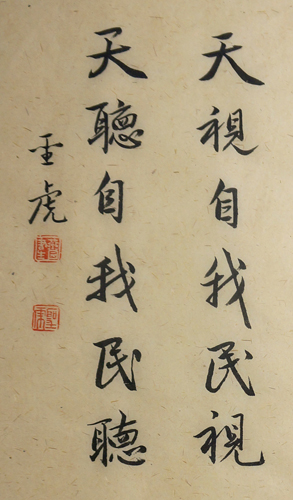 天視自我民視
天聽自我民聽